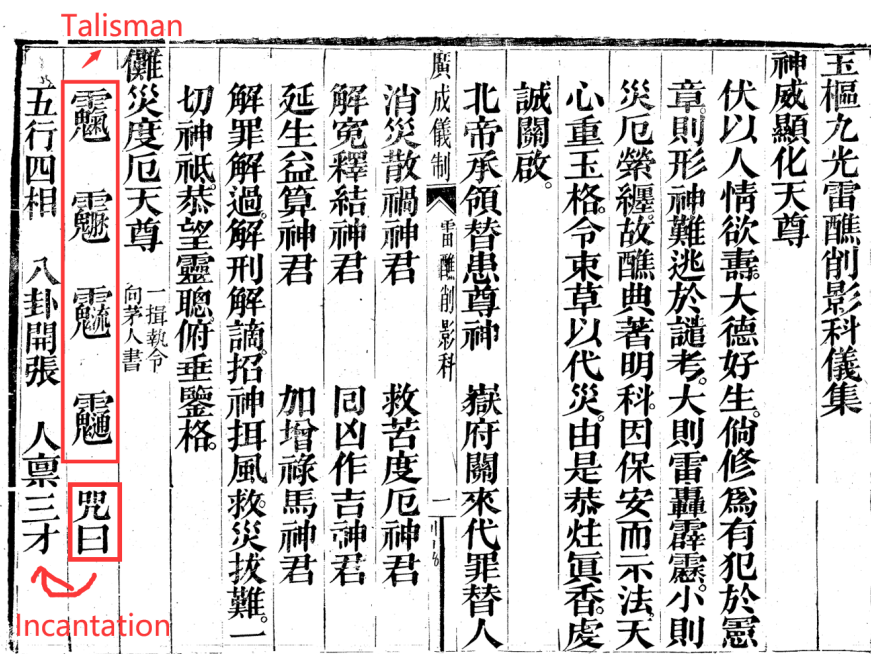 Talisman
玉樞九光雷醮削影科儀集
神威顯化天尊
伏以人情欲壽。大德好生。倘修爲有犯於憲
章。則形神難逃於譴考。大則雷轟霹靂。小則
災厄縈纏。故醮典著明科。因保安而示法。天
心重玉格。令束草以代災。由是恭炷眞香。虔
誠關啟。
北帝承領替患尊神 嶽府關來代罪替人
廣成儀制 雷醮削影科 一
消災散禍神君 救苦度厄神君
解冤釋結神君 回凶作吉神君
延生益算神君 加增祿馬神君
解罪解過。解刑解謫。招神風。救災拔難。一
切神祇。恭望靈聰。俯垂鑒格。
儺災度厄天尊 一揖執令
向茅人書
咒曰
五行四相 八卦開張 人稟三才
Incantation